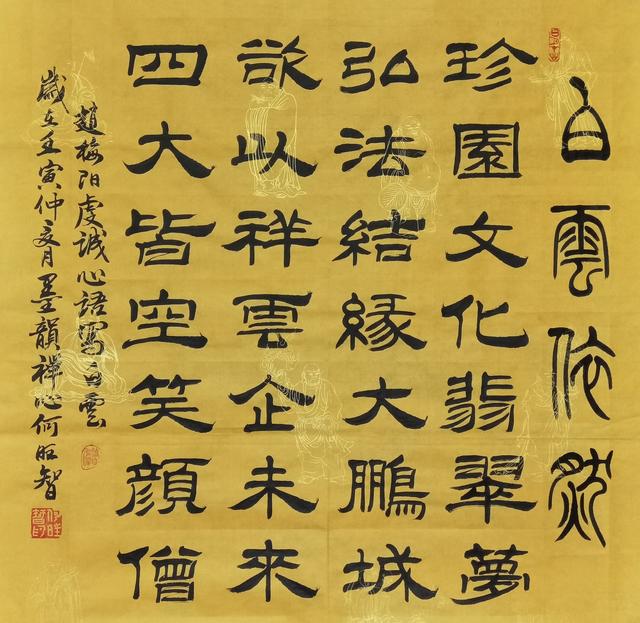 白雲依然
珍園文化翡翠夢
弘法結緣大鵬城
欲以祥雲企未來
四大皆空笑顔僧
趙梅阳虔誠心語寫白雲
歲在壬寅仲夏月墨韻禪心何旺智